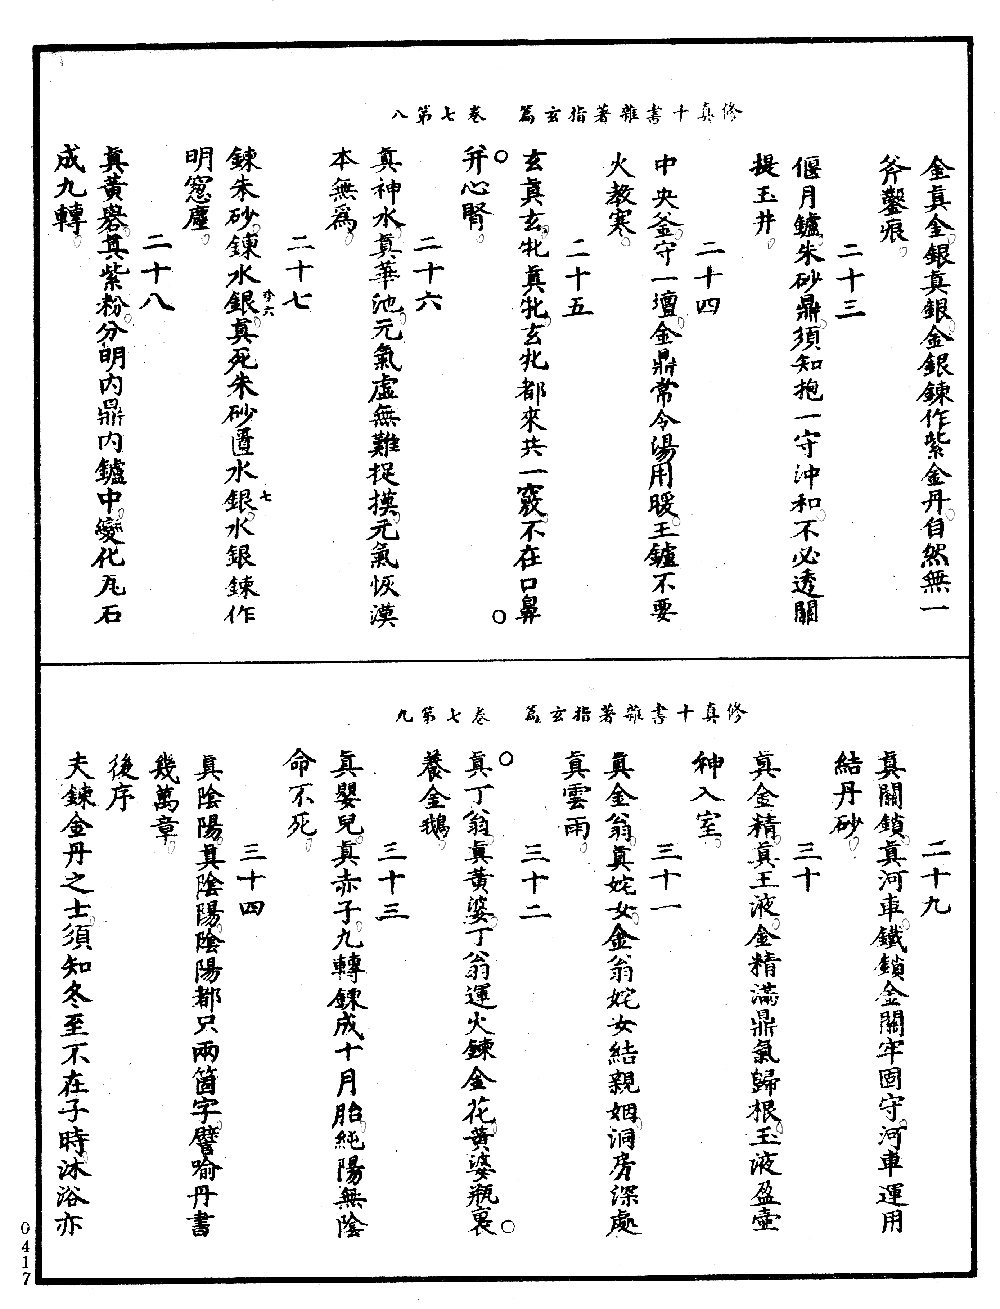 修真十書雜著指玄篇　卷七第八
金真金。銀真銀。金銀鍊作紫金丹。自然無一
斧鑿痕。
二十三
偃月鑪。朱砂鼎。須知抱一守沖和。不必透關
提玉井。
二十四
中央釜。守一壇。金鼎常令湯用暖。玉鑪不要
火教寒。
二十五
玄真玄。牝真牝。玄牝都來共一竅。不在口鼻
并心腎。
二十六
真神水。真華池。元氣虛無難捉摸。元氣恢漠
本無爲。
二十七
鍊朱砂。鍊水銀。真死朱砂匱水銀。水銀鍊作
明窻塵。
二十八
真黃轝。真紫粉。分明內鼎內鑪中。變化瓦石
成九轉。
修真十書雜著指玄篇　卷七第九
二十九
真關鎖。真河車。鐵鎖金關牢固守。河車運用
結丹砂。
三十
真金精。真玉液。金精滿鼎氣歸根。玉液盈壺
神入室。
三十一
真金翁。真姹女。金翁姹女結親姻。洞房深處
真雲雨。
三十二
真丁翁。真黃婆。丁翁運火鍊金花。黃婆瓶裏
養金鵝。
三十三
真嬰兒。真赤子。九轉鍊成十月胎。純陽無陰
命不死。
三十四
真陰陽。真陰陽。陰陽都只兩箇字。譬喻丹書
幾萬章。
後序
夫鍊金丹之士。須知冬至不在子時。沐浴亦
0417